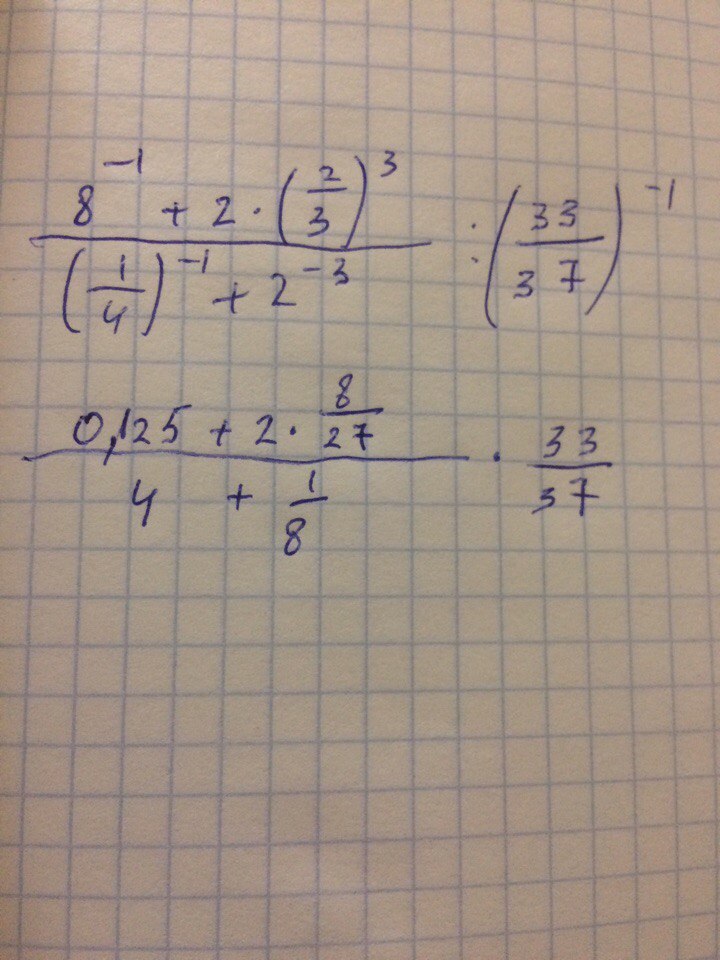 (8^-1 + 2 · (2/3)^3) / ((1/4)^-1 + 2^-3) : (33/37)^-1
(0,125 + 2 · 8/27) / (4 + 1/8) · 33/37